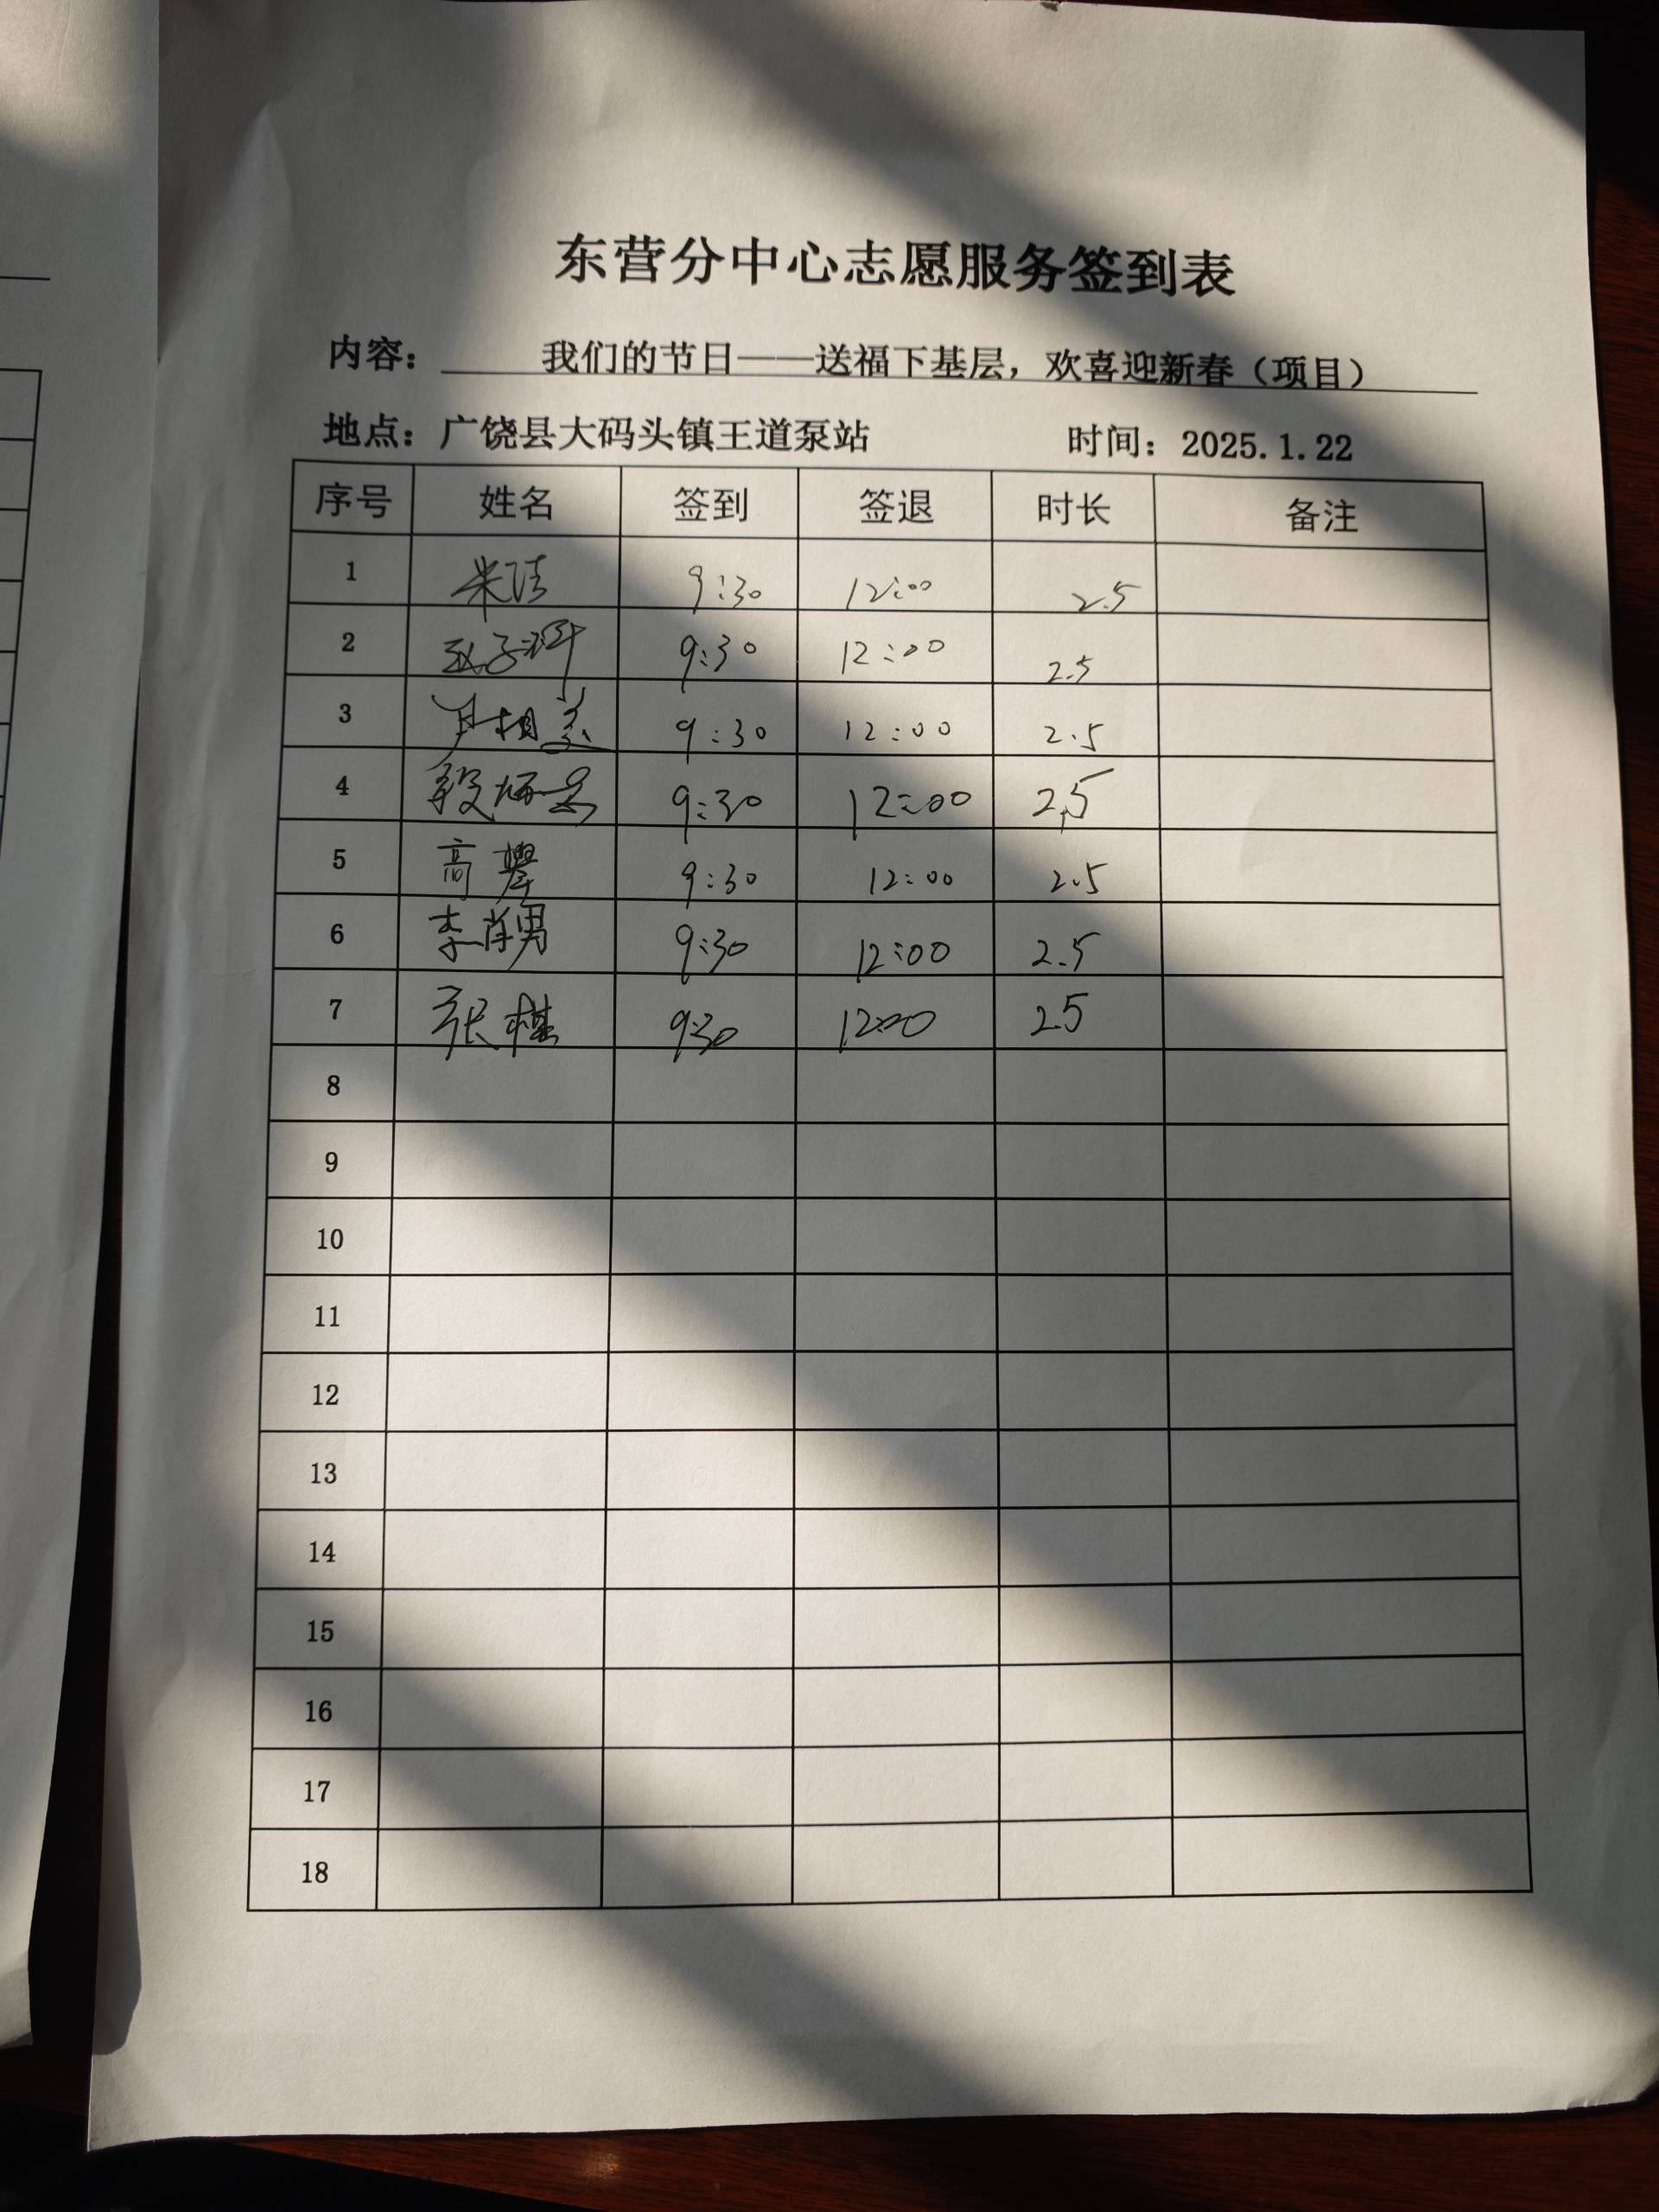 东营分中心志愿服务签到表
内容： 我们的节日——送福下基层，欢喜迎新春（项目）
地点：广饶县大码头镇王道泵站 时间：2025.1.22
序号 姓名 签到 签退 时长 备注
1 9:30 12:00 2.5
2 9:30 12:00 2.5
3 9:30 12:00 2.5
4 段 9:30 12:00 2.5
5 高 9:30 12:00 2.5
6 李肖男 9:30 12:00 2.5
7 张棋 9:30 12:00 2.5
8
9
10
11
12
13
14
15
16
17
18